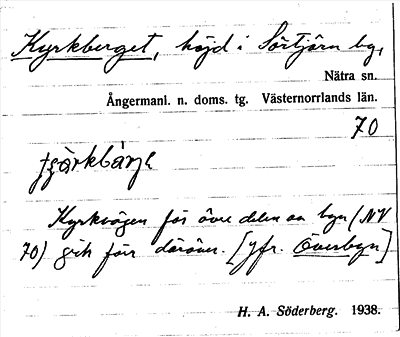 Kyrkberget, höjd i Sörtjärn by,
Nätra sn.
Ångermanl. n. doms. tg. Västernorrlands län.
70
Kyrkvägen för övre delen av byn (NV
70) gick förr däröver. [Jfr. Överbyn]
H. A. Söderberg. 1938.